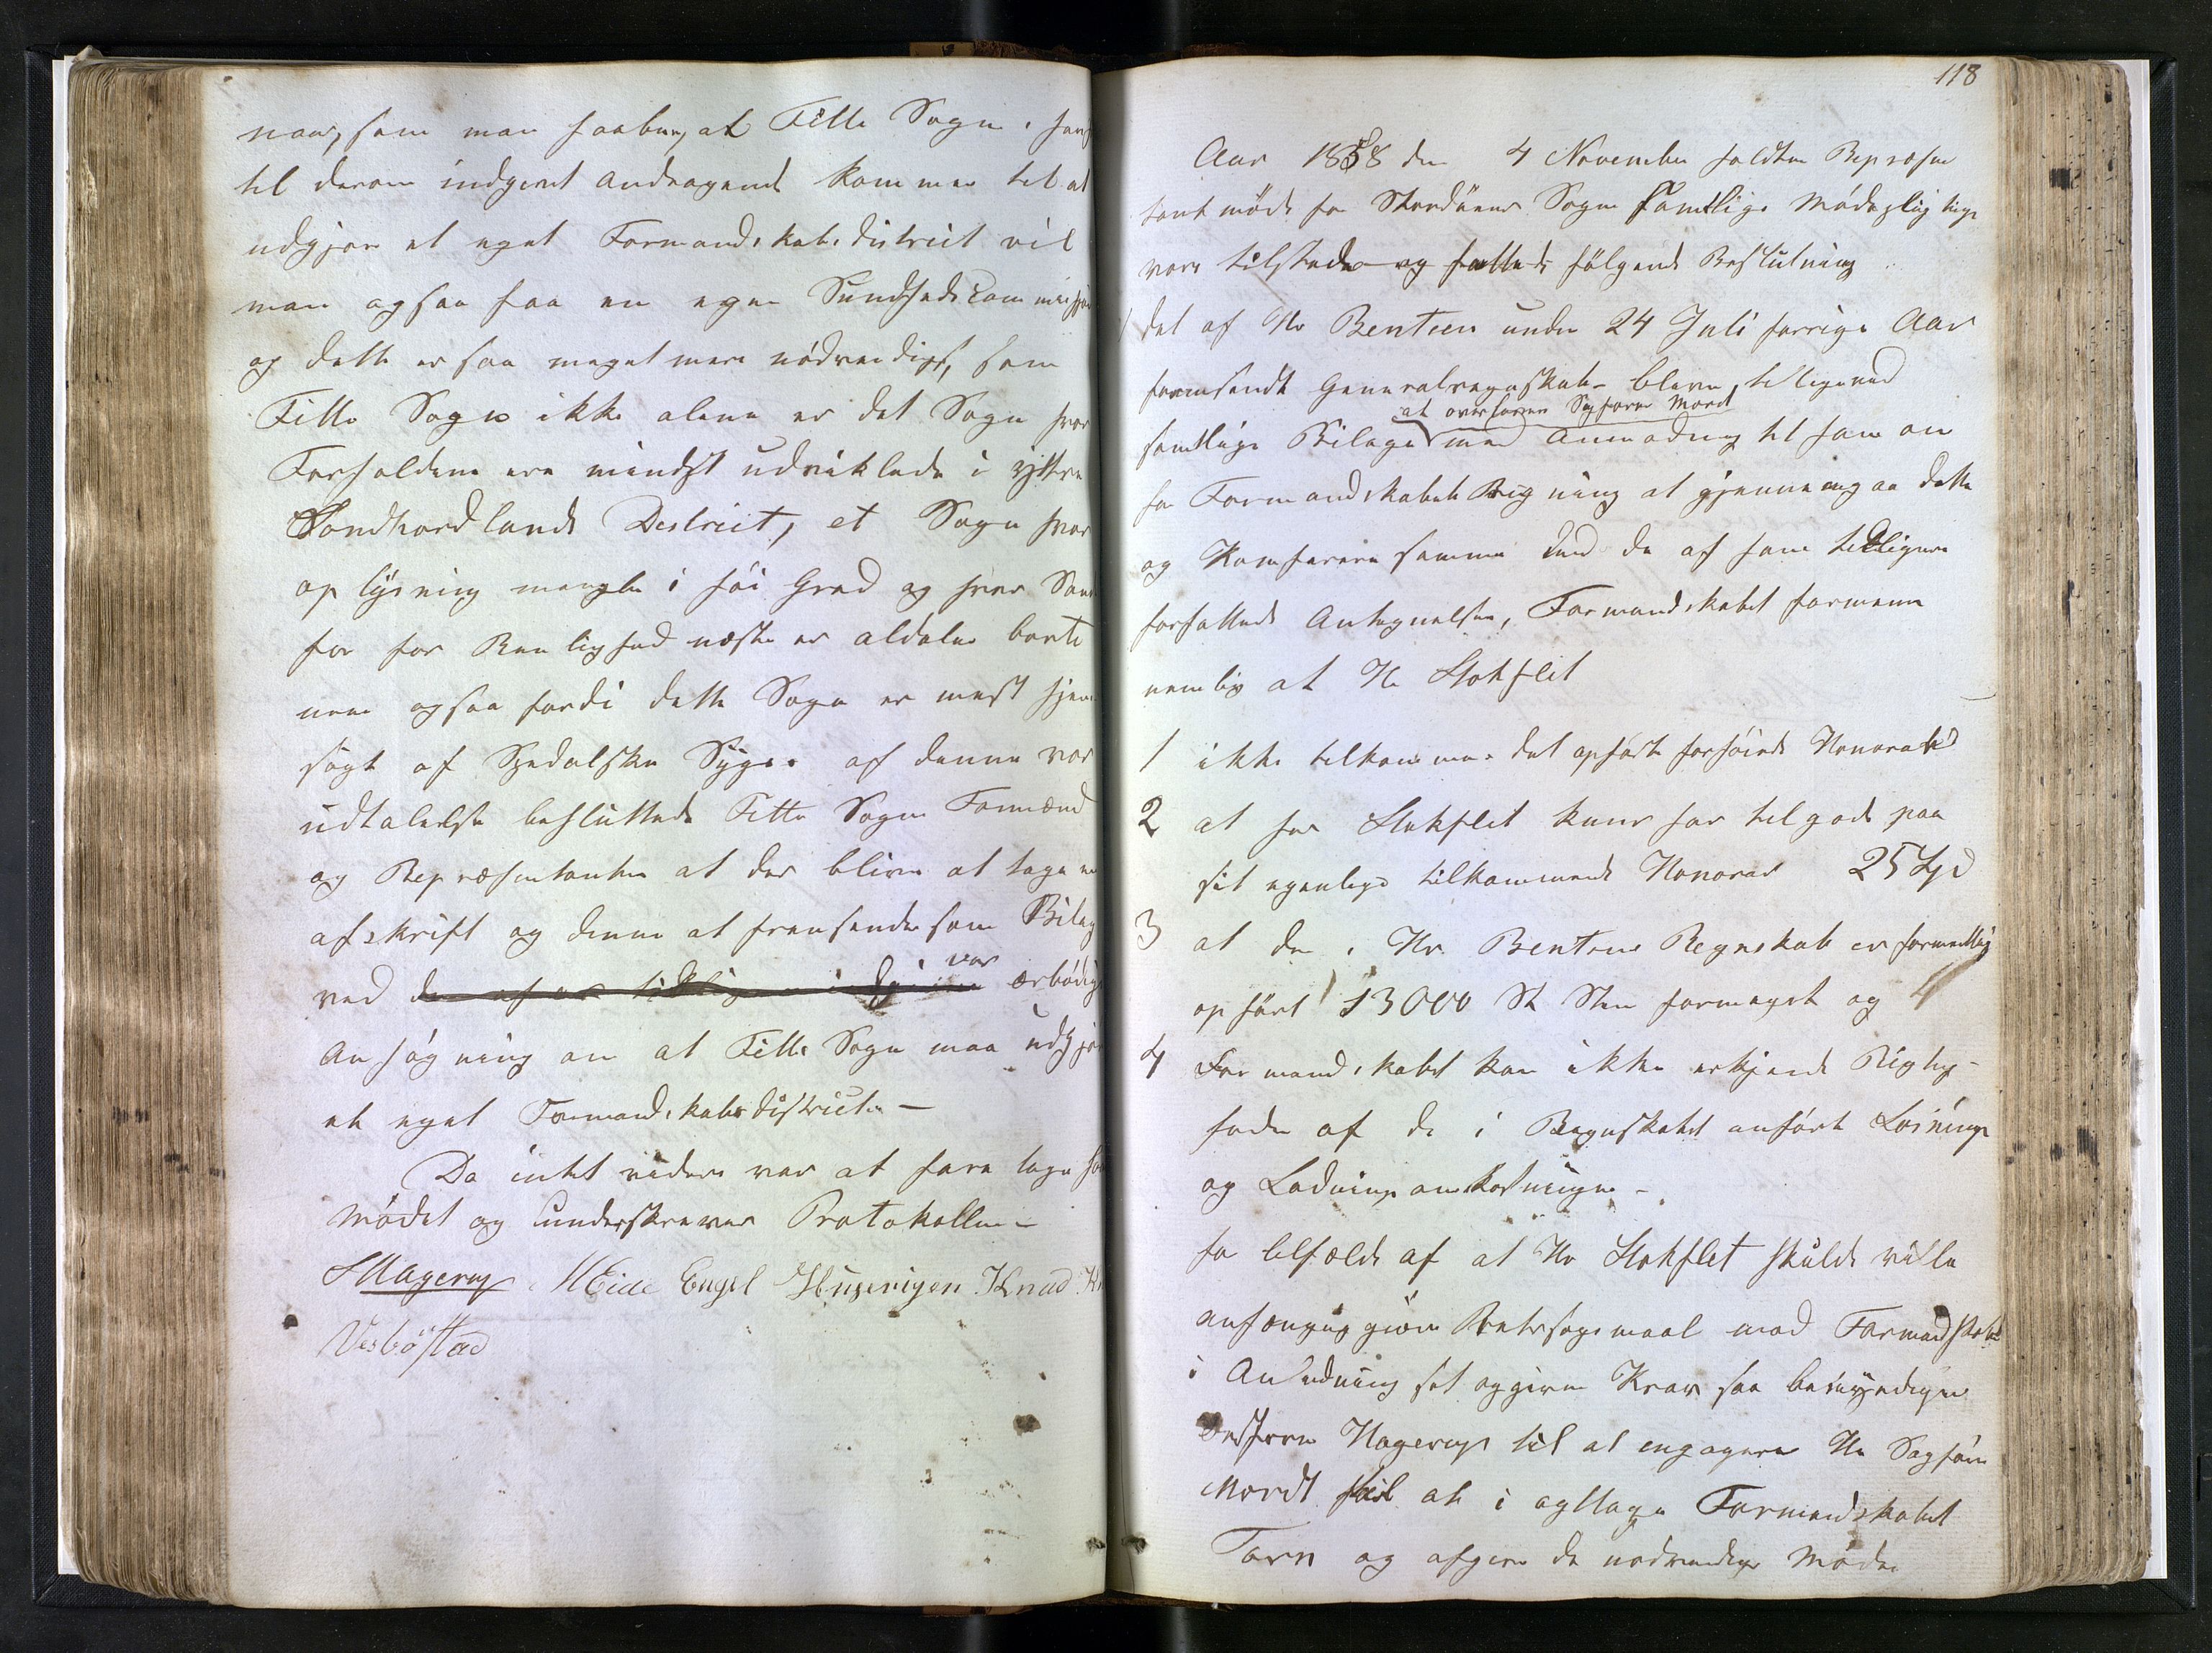 naar, som man haaber, at Fitte Sogn i hen
til derom indgivet andragende kommer til at
udgjøre et eget Formandskabsdistrict vil
man ogsaa faa en egen Sundhedscommissjon
og dette er saa meget mere nødvendigt, som
Fitte Sogn ikke alene er det Sogn hvor
Forholdene ere mindst udviklede i yttre
Søndhordlands District, et Sogn hvor
oplysning mangler i høi Grad og hver Sands
for for Renlighed næsten er aldeles borte
men ogsaa fordi dette Sogn er mest hjem
søgt af Spedalske Syge. af denne vor
udtalelse besluttede Fitte Sogns Formænd
og Repræsentanter at der bliver at tage en
afskrift og denne at fremsende som Bilag
ved den af os tidligere vor ærbødige
Ansøgning om at Fitte Sogn maa udgjøre
et eget Formandskabsdistrict. —
Da intet videre var at fore toges hævet
Mødet og underskrives Protokollen –
SHagerup. HEide Engel Huserigen. Knud. K
Vesbøstad
118
Aar 1858 den 4 November holdtes Repræsen
tantmøde for Stordøens Sogn samtlige Mødepligtige
vare tilstede og fattede følgende Beslutning
1 det af Hr Bentzen under 24 Juli forrige Aar
fremsendt Generalregnskab bliver tilligemed
at oversende Sagfører Mordt
samtlige Bilage med Anmodning til ham om
for Formandskabets Regning at gjennemgaa dette
og Konferere samme med de af ham tidligere
forfattede Antegnelser, Formandskabet formener
nemlig at Hr Stokflet
1 ikke tilkommer det opførte forhøiede Honorar
2 at hr Stokflet kuns har tilgode paa
sit egenlige tilkommende Honorar 25 Spd
3 at der i Hr. Bentzens Regnskab er formentlig
opført 13000 St Sten formeget og
4 Formandskabet kan ikke erkjende Rigtig-
heden af de i Regnskabet anførte Losnings
og Ladningsomkostninger –
for tilfælde af at Hr Stokflet skulde ville
anhængiggiøre Retssøgsmaal mod Formandskabet
i Anledning sit opgivne Krav saa bemyndiges
Ordføren Hagerup til at engagere Hr Sagfører
Mordt til at i agttage Formandskabets
Tarv og afgive de nødvendige Møder